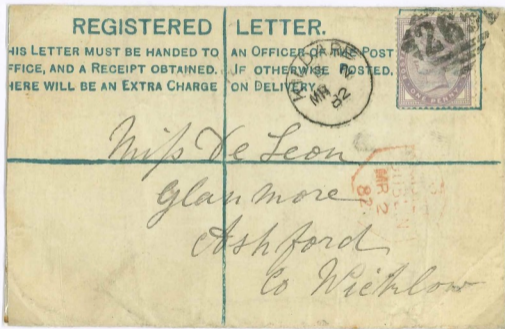 REGISTERED LETTER.
HIS LETTER MUST BE HANDED TO AN OFFICER OF THE POST
FFICE, AND A RECEIPT OBTAINED. IF OTHERWISE POSTED,
HERE WILL BE AN EXTRA CHARGE ON DELIVERY
MR 2
82
26
ONE PENNY
Miss De Leon
Glanmore
Ashford
Co Wicklow
MR 2
82